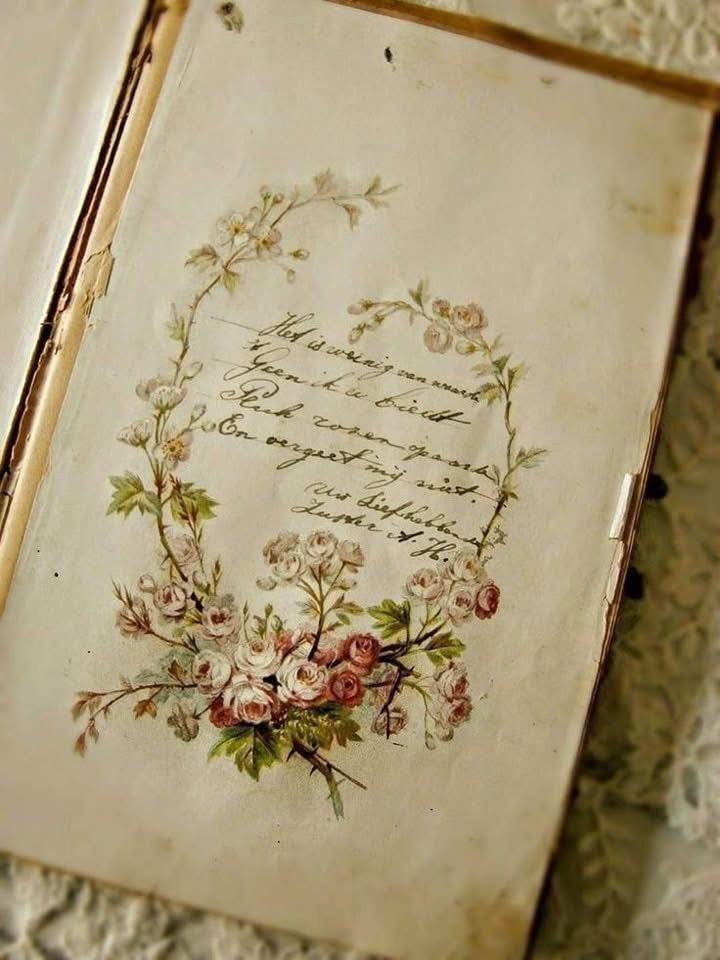 Het is weinig van waarde
Geen ik u biedt
Pluk rozen op aard
En vergeet mij niet.
Uw Liefhebbende
Zuster A. H.